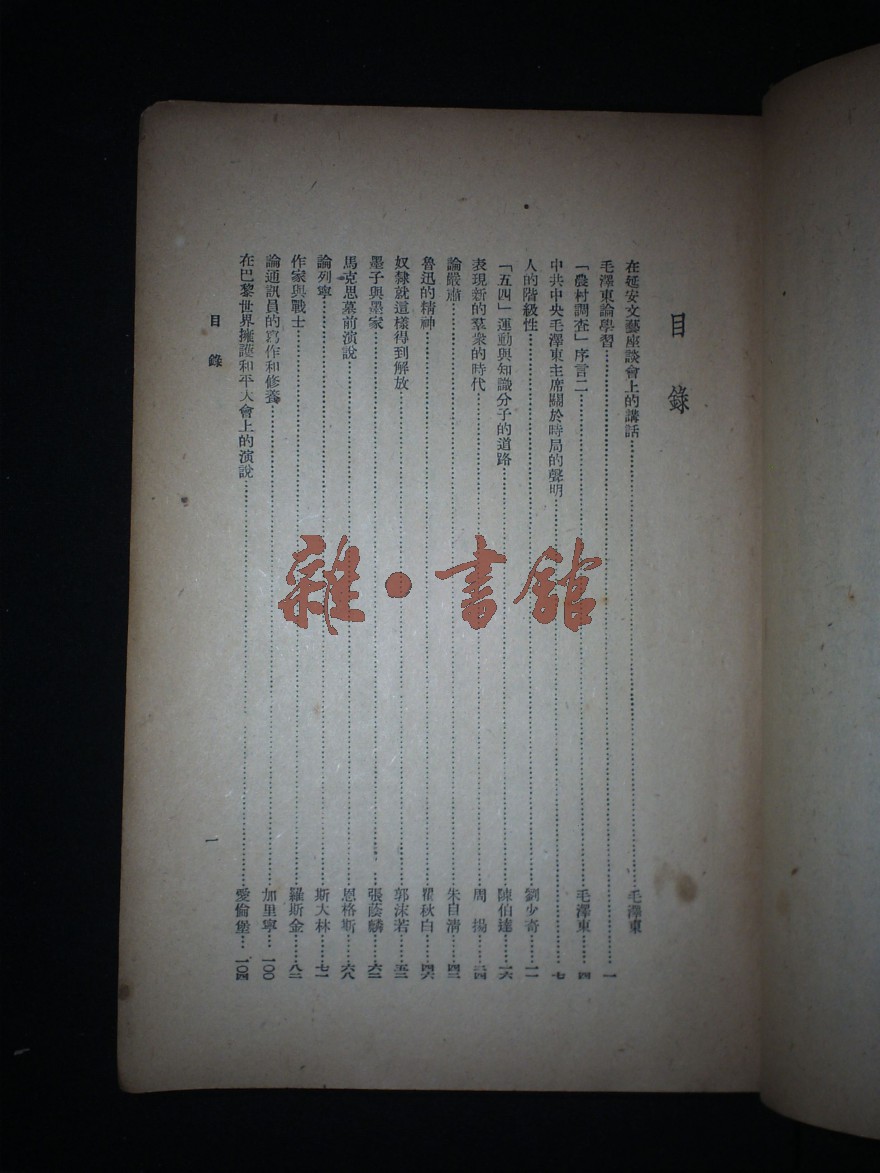 目錄
在延安文藝座談會上的講話……毛澤東
毛澤東論學習……一
「農村調査」序言二……毛澤東……四
中共中央毛澤東主席關於時局的聲明……七
人的階級性……劉少奇……一一
「五四」運動與知識分子的道路……陳伯達……一六
表現新的羣衆的時代……周揚……三四
論嚴肅……朱自清……四二
魯迅的精神……瞿秋白……四六
奴隸就這樣得到解放……郭沫若……五二
墨子與墨家……張蔭麟……六二
馬克思墓前演說……恩格斯……六八
論列寧……斯大林……七一
作家與戰士……羅斯金……八二
論通訊員的寫作和修養……加里寧……一〇〇
在巴黎世界擁護和平大會上的演說……愛倫堡……一〇四
目錄
一
雜·書館